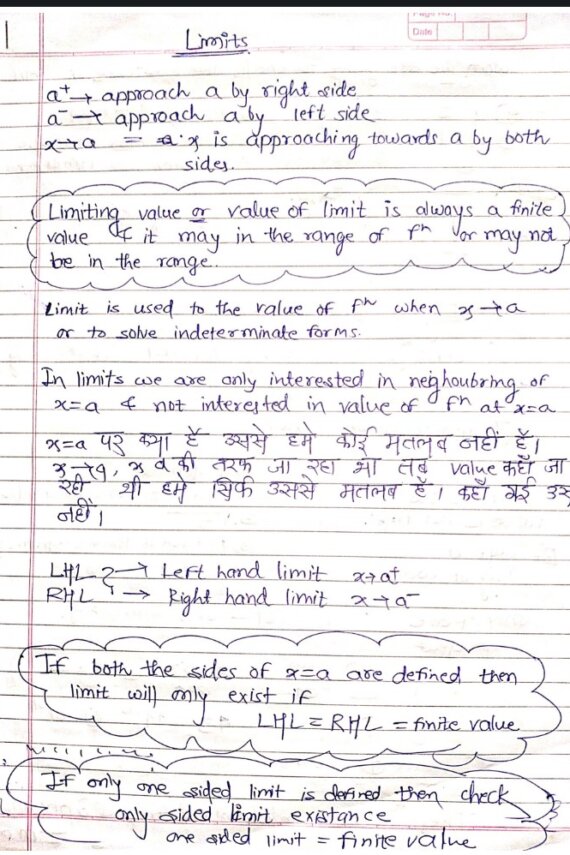 Date
Limits
a⁺ → approach a by right side
a⁻ → approach a by left side
x→a = x is approaching towards a by both
sides.
Limiting value or value of limit is always a finite
value & it may in the range of fⁿ or may not
be in the range.
Limit is used to the value of fⁿ when x→a
or to solve indeterminate forms.
In limits we are only interested in neighoubring of
x=a & not interested in value of fⁿ at x=a
x=a पर क्या है उससे हमे कोई मतलब नहीं है।
x→a, x a की तरफ जा रहा था तब value कहाँ जा
रही थी हमे सिर्फ उससे मतलब है। कहाँ गई उससे
नहीं।
LHL → Left hand limit x→a⁺
RHL → Right hand limit x→a⁻
If both the sides of x=a are defined then
limit will only exist if
LHL = RHL = finite value
If only one sided limit is defined then check
only sided limit existance
one sided limit = finite value